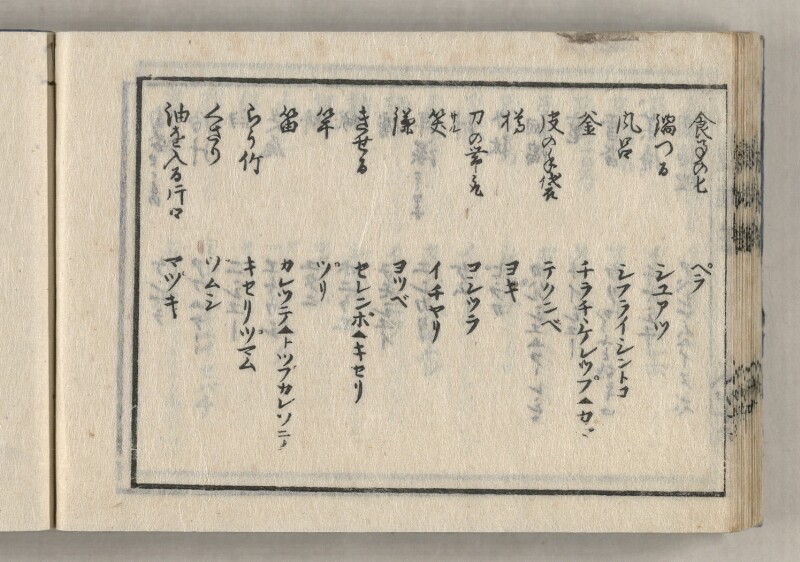 食事の匕　ペラ
鍋つる　シユアツ
風呂　シフライシントコ
釜　チラチケレツプ▲カ
皮の手袋　テクンベ
ヨキ
刀の帯　コシツラ
笊 サル　イチヤリ
鎌　ヨツベ
きせる　セレンボ▲キセリ
竿　ツ゚リ
笛　カレツテ▲トツプカレツニ
らう竹　キセリツ゚マム
くさり　ツムシ
油を入る片口　マヅキ